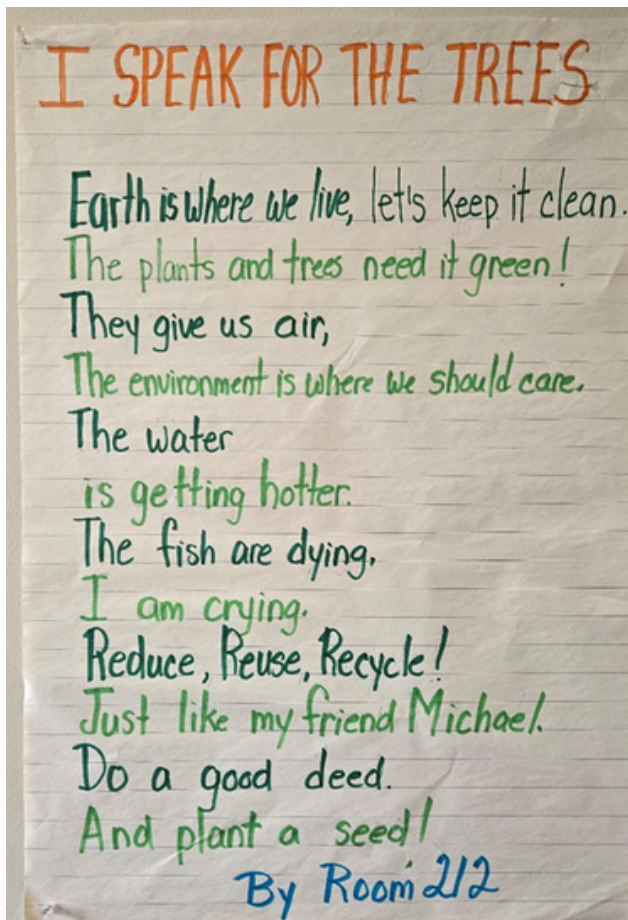 I SPEAK FOR THE TREES
Earth is where we live, let's keep it clean.
The plants and trees need it green!
They give us air,
The environment is where we should care.
The water
is getting hotter.
The fish are dying,
I am crying.
Reduce, Reuse, Recycle!
Just like my friend Michael.
Do a good deed.
And plant a seed!
By Room 212